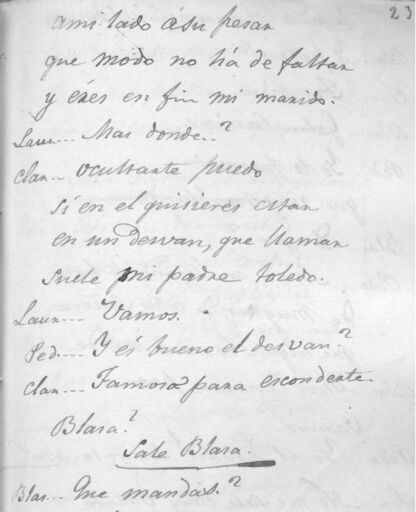 23
ami lado ásu pesar
que modo no há de faltar
y éres en fin mi marido.
Laur... Mas donde..?
Clar... ocultarte puedo
si en el quisieres estar
en un desvan, que llaman
suele mi padre toledo.
Laur.... Vamos.
Ped.... Y és bueno el desvan?
Clar.... Famoso para esconderte.
Blasa?
Sale Blasa.
Blas... Que mandas?